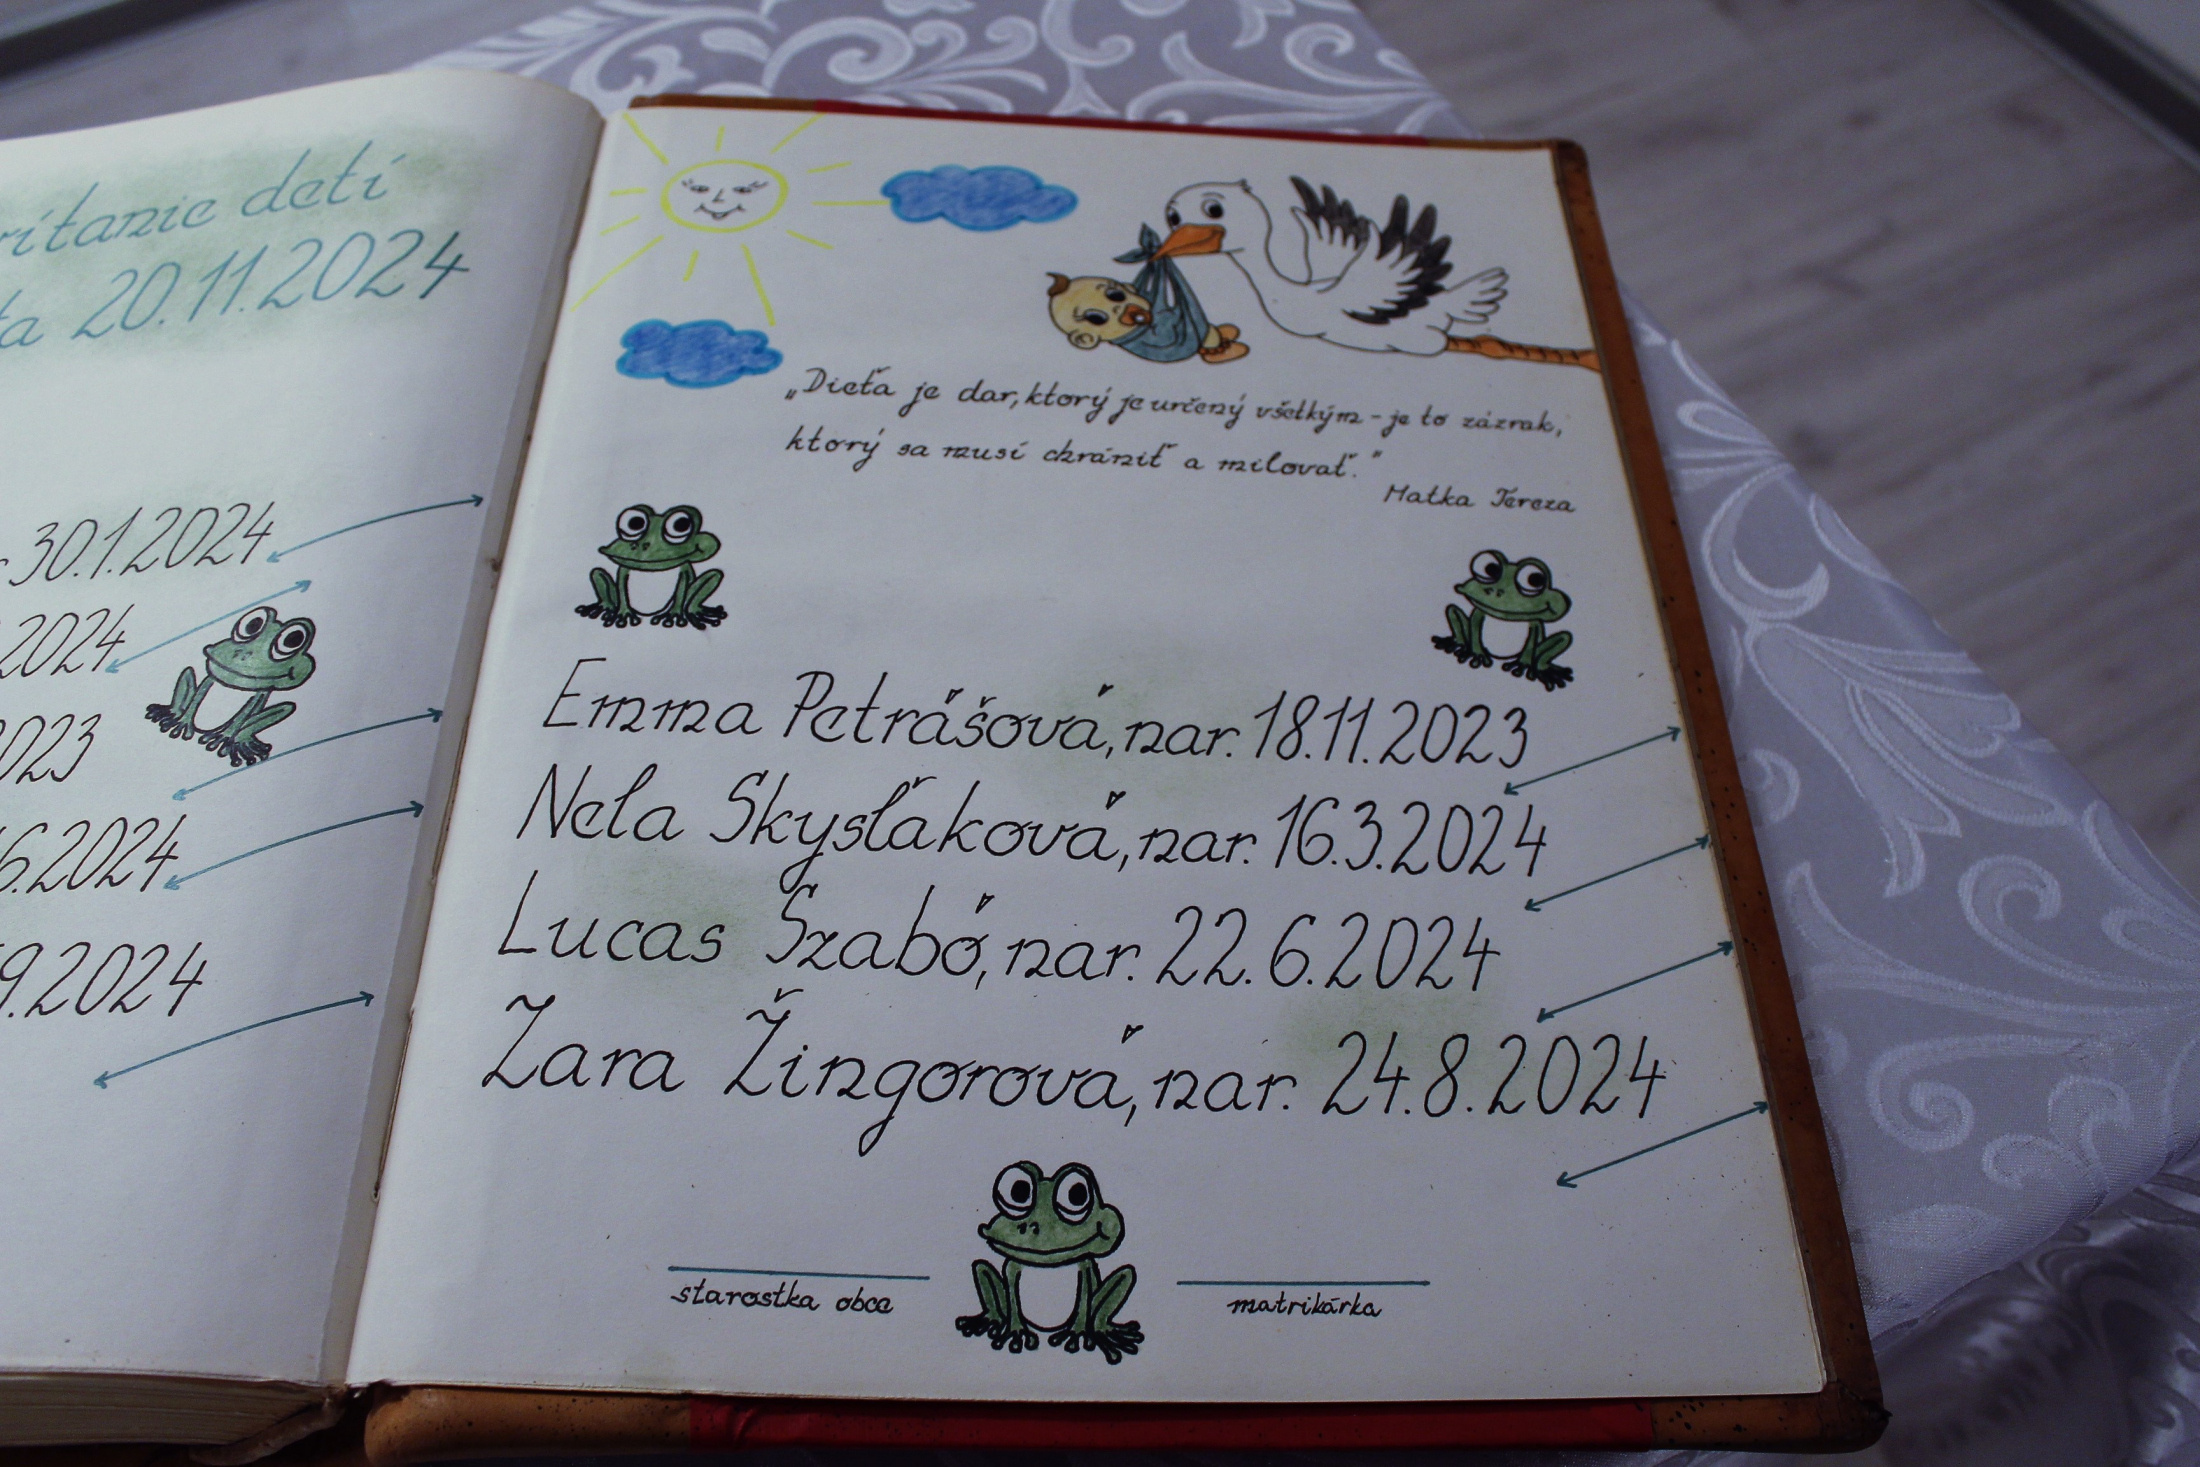 detí
20.11.2024
30.1.2024
2024
2023
6.2024
9.2024
„Dieťa je dar, ktorý je určený všetkým - je to zázrak,
ktorý sa musí chrániť a milovať."
Matka Tereza
Emma Petrášová, nar. 18.11.2023
Nela Skysľaková, nar. 16.3.2024
Lucas Szabó, nar. 22.6.2024
Zara Žingorová, nar. 24.8.2024
starostka obce
matrikárka